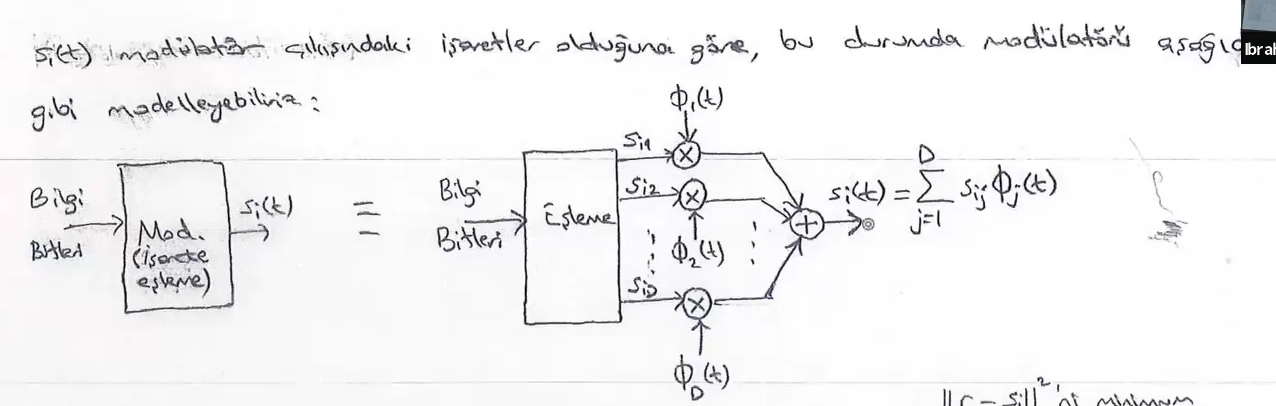 si(t) modülatör çıkışındaki işaretler olduğuna göre, bu durumda modülatörü aşağıd
Ibrah
gibi modelleyebiliriz:
ϕ1(t)
Bilgi
Bitleri
Mod.
(işarete
eşleme)
si(t)
≡
Bilgi
Bitleri
Eşleme
si1
si2
siD
ϕ2(t)
ϕD(t)
si(t) = D ∑ j=1 sij ϕj(t)
||r - si||²'ni minimum